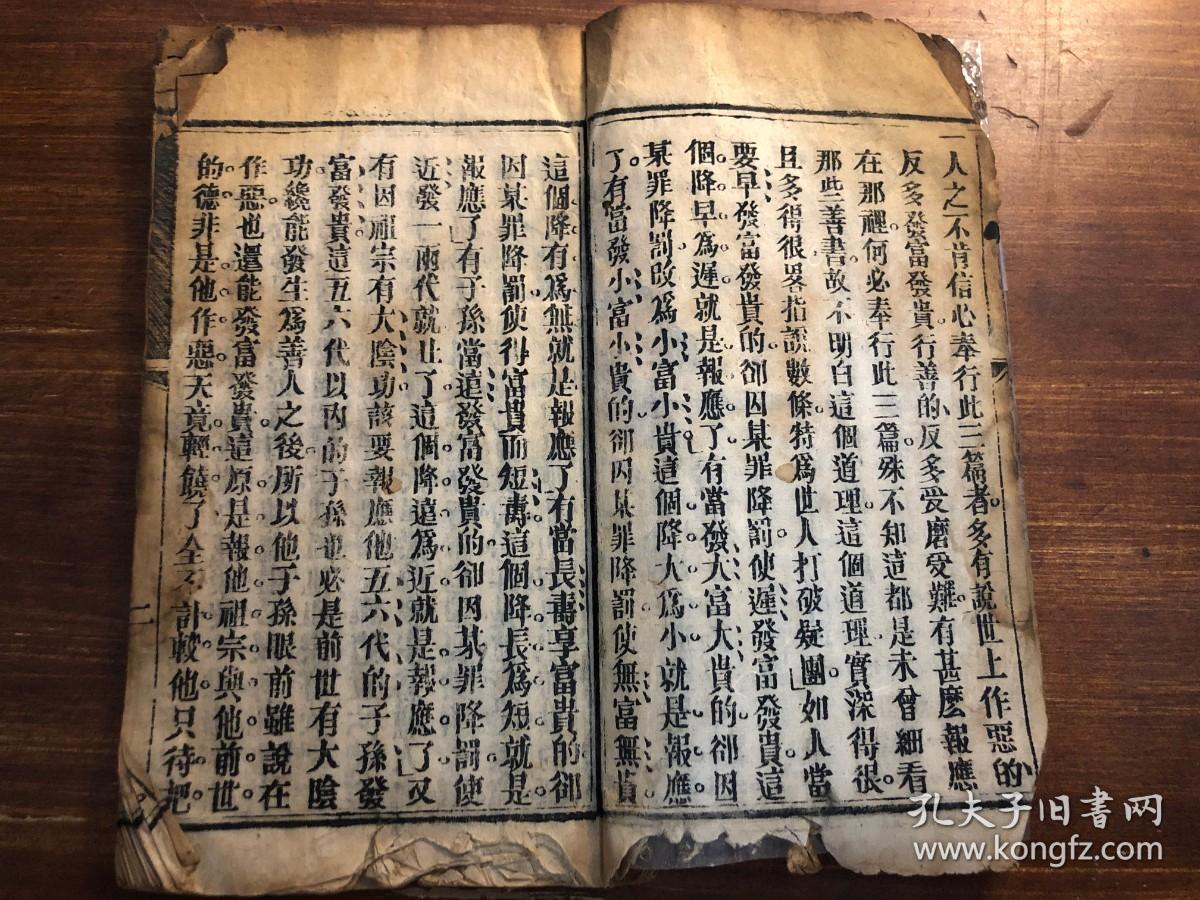 一人之不肯信心奉行此三篇者。多有說世上作惡的
反多發富發貴。行善的。反多受磨受難。有甚麽報應
在那裡。何必奉行此三篇。殊不知這都是未曾細看
那些善書。故不明白這個道理。這個道理實深得很。
且多得很。畧指說數條。特爲世人打破疑團。如人當
要早發富發貴的。卻因某罪降罰。使遲發富發貴。這
個降早爲遲。就是報應了。有當發大富大貴的。卻因
某罪降罰。改爲小富小貴。這個降大爲小。就是報應
了。有當發小富小貴的。卻因某罪降罰。使無富無貴。
這個降有爲無。就是報應了。有當長壽享富貴的。卻
因某罪降罰。使得富貴而短壽。這個降長爲短。就是
報應了。有子孫當遠發富發貴的。卻因某罪降罰。使
近發一兩代就止了。這個降遠爲近。就是報應了。又
有因祖宗有大陰功。該要報應他五六代的子孫發
富發貴。這五六代以內的子孫。也必是前世有大陰
功。纔能發生爲善人之後。所以他子孫眼前雖說在
作惡。也還能發富發貴。這原是報他祖宗與他前世
的德。非是他作惡。天竟輕饒了。全不計較他。只待把
二
孔夫子旧書网
www.kongfz.com